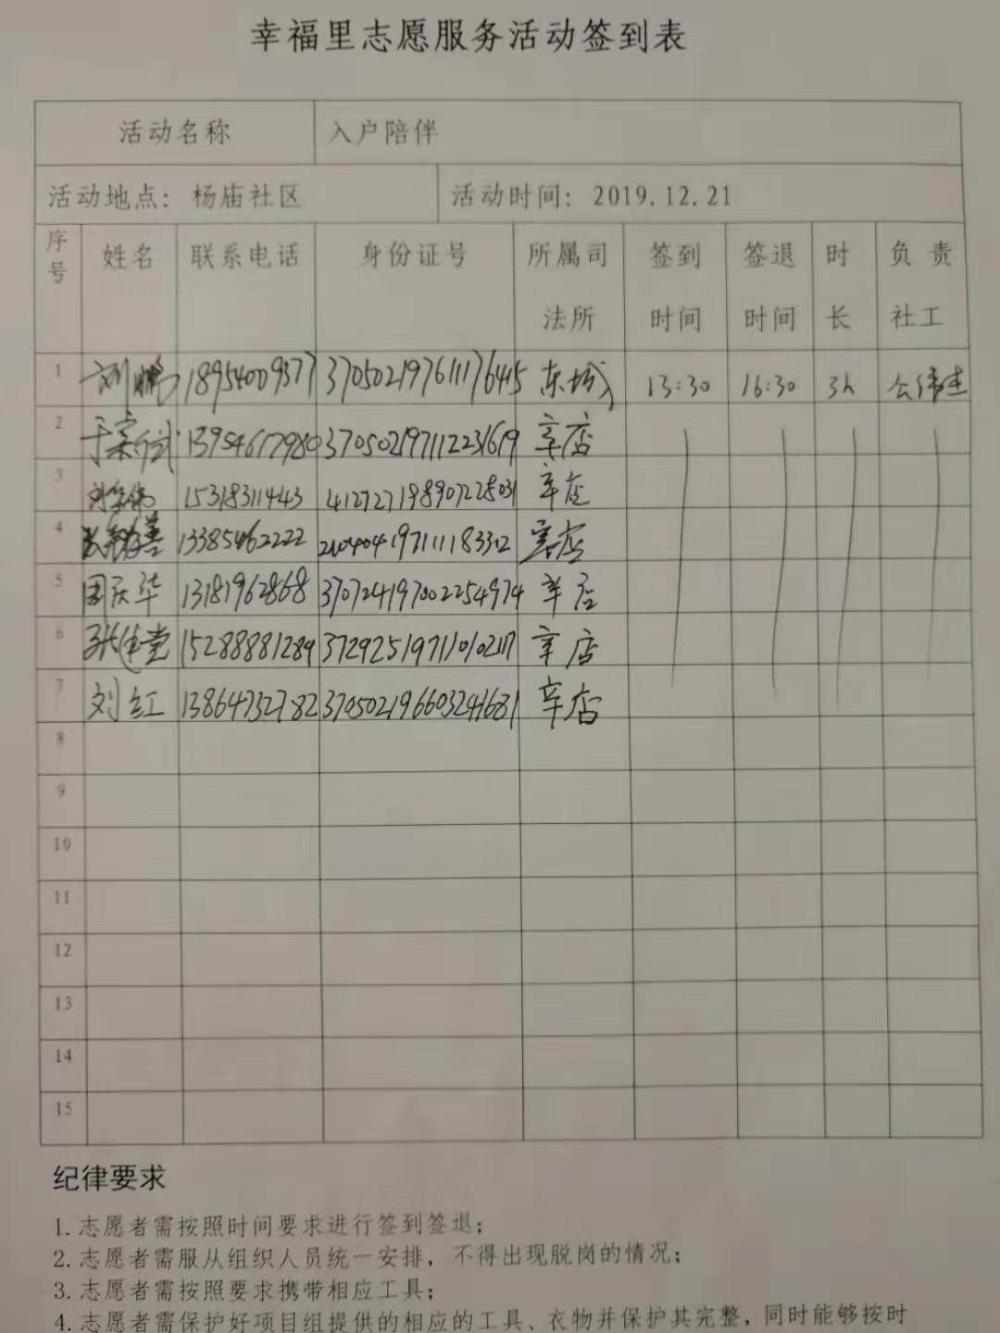 幸福里志愿服务活动签到表
活动名称 入户陪伴
活动地点: 杨庙社区 活动时间: 2019.12.21
序号 姓名 联系电话 身份证号 所属司法所 签到时间 签退时间 时长 负责社工
1 刘鹏 18954009377 370502197611176415 东城 13:30 16:30 3h
2 于宗 13954617980 370502197112231619 辛店
3 15318311443 412727198907228031 辛店
4 善 13385462222 辛店
5 周庆华 13181962868 370724197002254974 辛店
6 张建堂 15288881284 372925197110102117 辛店
7 刘红 13864732782 370502196603241681 辛店
8
9
10
11
12
13
14
15
纪律要求
1.志愿者需按照时间要求进行签到签退;
2.志愿者需服从组织人员统一安排，不得出现脱岗的情况;
3.志愿者需按照要求携带相应工具;
4.志愿者需保护好项目组提供的相应的工具、衣物并保护其完整，同时能够按时